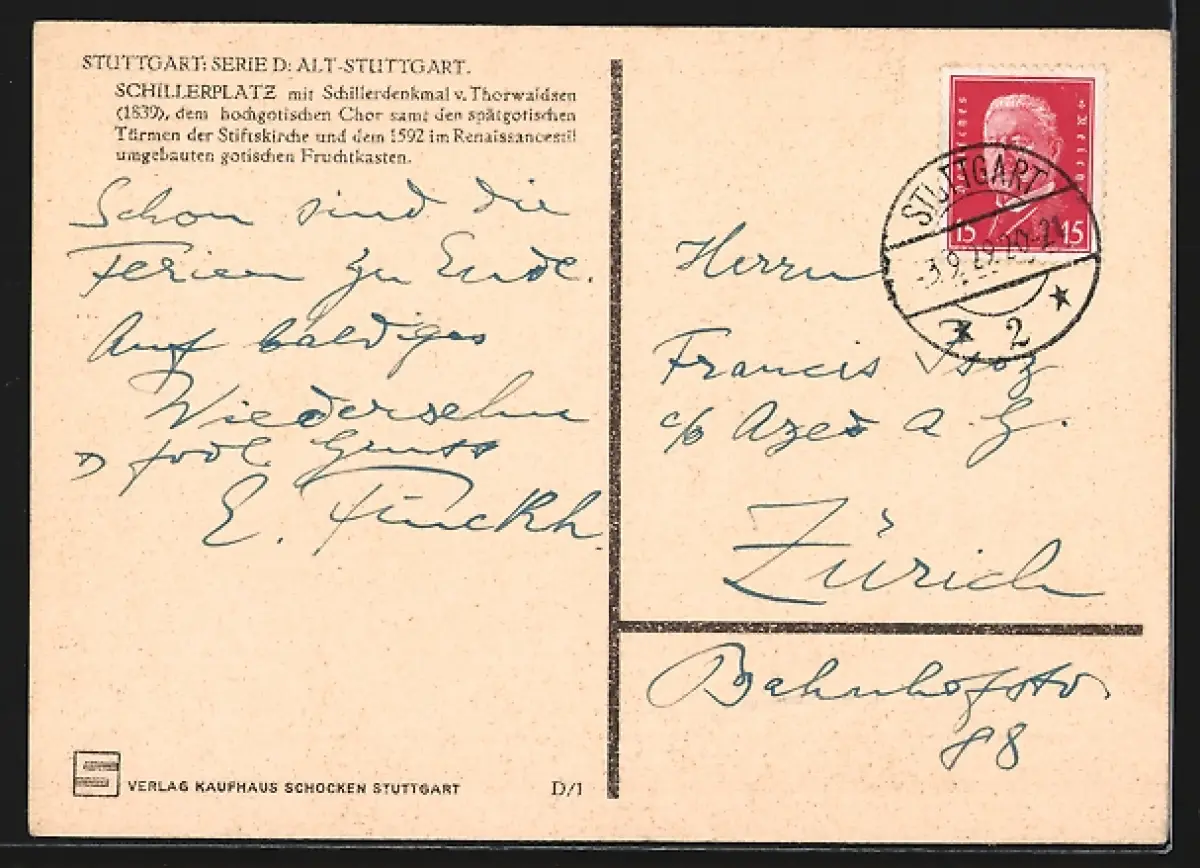 STUTTGART: SERIE D: ALT-STUTTGART.
SCHILLERPLATZ mit Schillerdenkmal v. Thorwaldsen
(1839), dem hochgotischen Chor samt den spätgotischen
Türmen der Stiftskirche und dem 1592 im Renaissancestil
umgebauten gotischen Fruchtkasten.
Schon sind die
Ferien zu Ende.
Auf baldiges
Wiedersehn
frdl. Gruss
E. Finckh.
VERLAG KAUFHAUS SCHOCKEN STUTTGART
D/1
Deutsches Reich
15 15
STUTTGART
-3.9.29.20-21
2
Herrn
Francis
c/o Azed A. G.
Zürich
Bahnhofstr
88